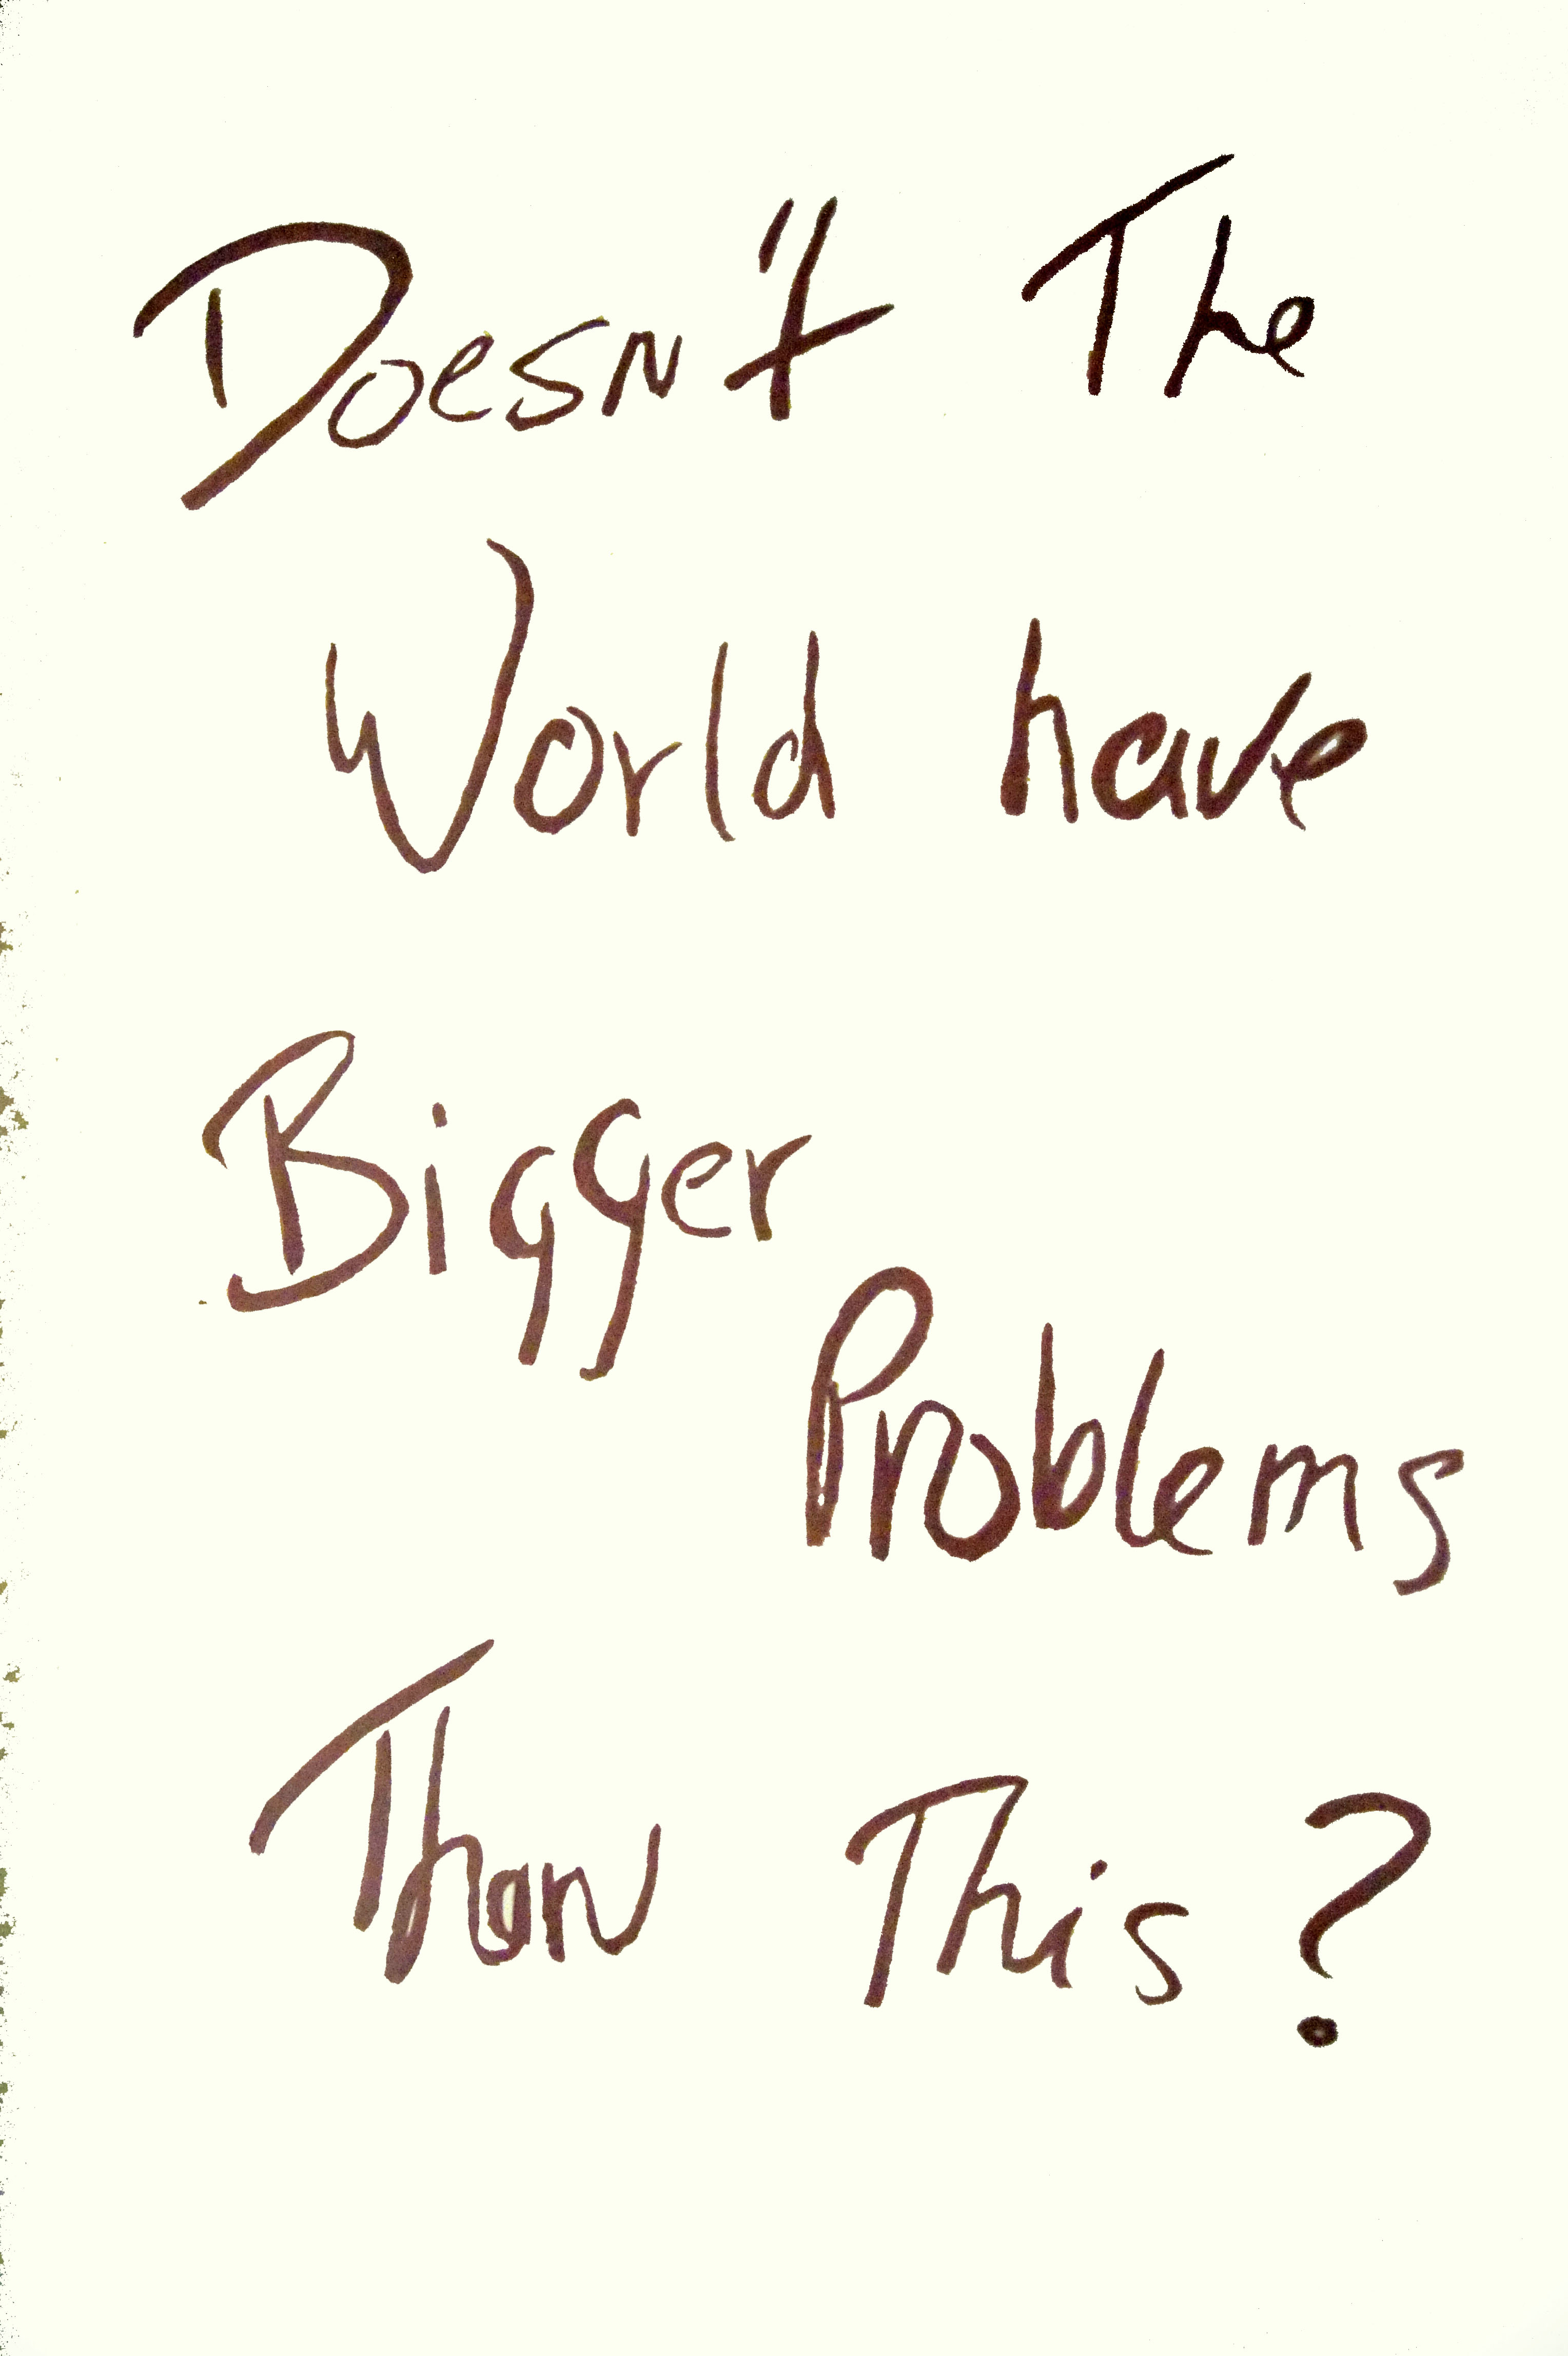 Doesn't The
World have
Bigger
Problems
Than This?